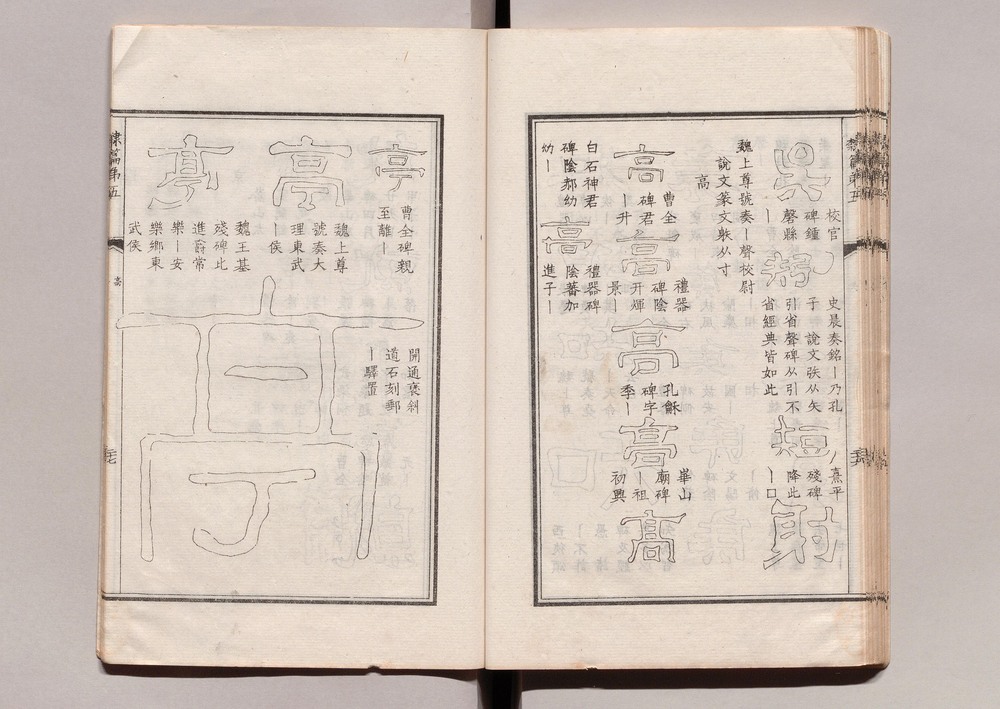 隸篇第五
校官
碑鍾
磬縣
丨
矧
史晨奏銘丨乃孔
子 說文㢧从矢
引省聲碑从引不
省經典皆如此
短
熹平
殘碑
降此
丨囗
射
魏上尊號奏丨聲校尉
說文篆文躲从寸
高
高
曹全
碑君
丨升
高
禮器
碑陰
升煇
景丨
高
孔龢
碑字
季丨
高
華山
廟碑
丨祖
初興
高
白石神君
碑陰郝幼
幼丨
高
禮器碑
陰蕃加
進子丨
亭
曹全碑親
至離丨
亭
魏上尊
號奏大
理東武
丨侯
亭
魏王基
殘碑此
進爵常
樂丨安
樂鄉東
武侯
開通褒斜
道石刻郵
丨驛置
亭
隸篇第五